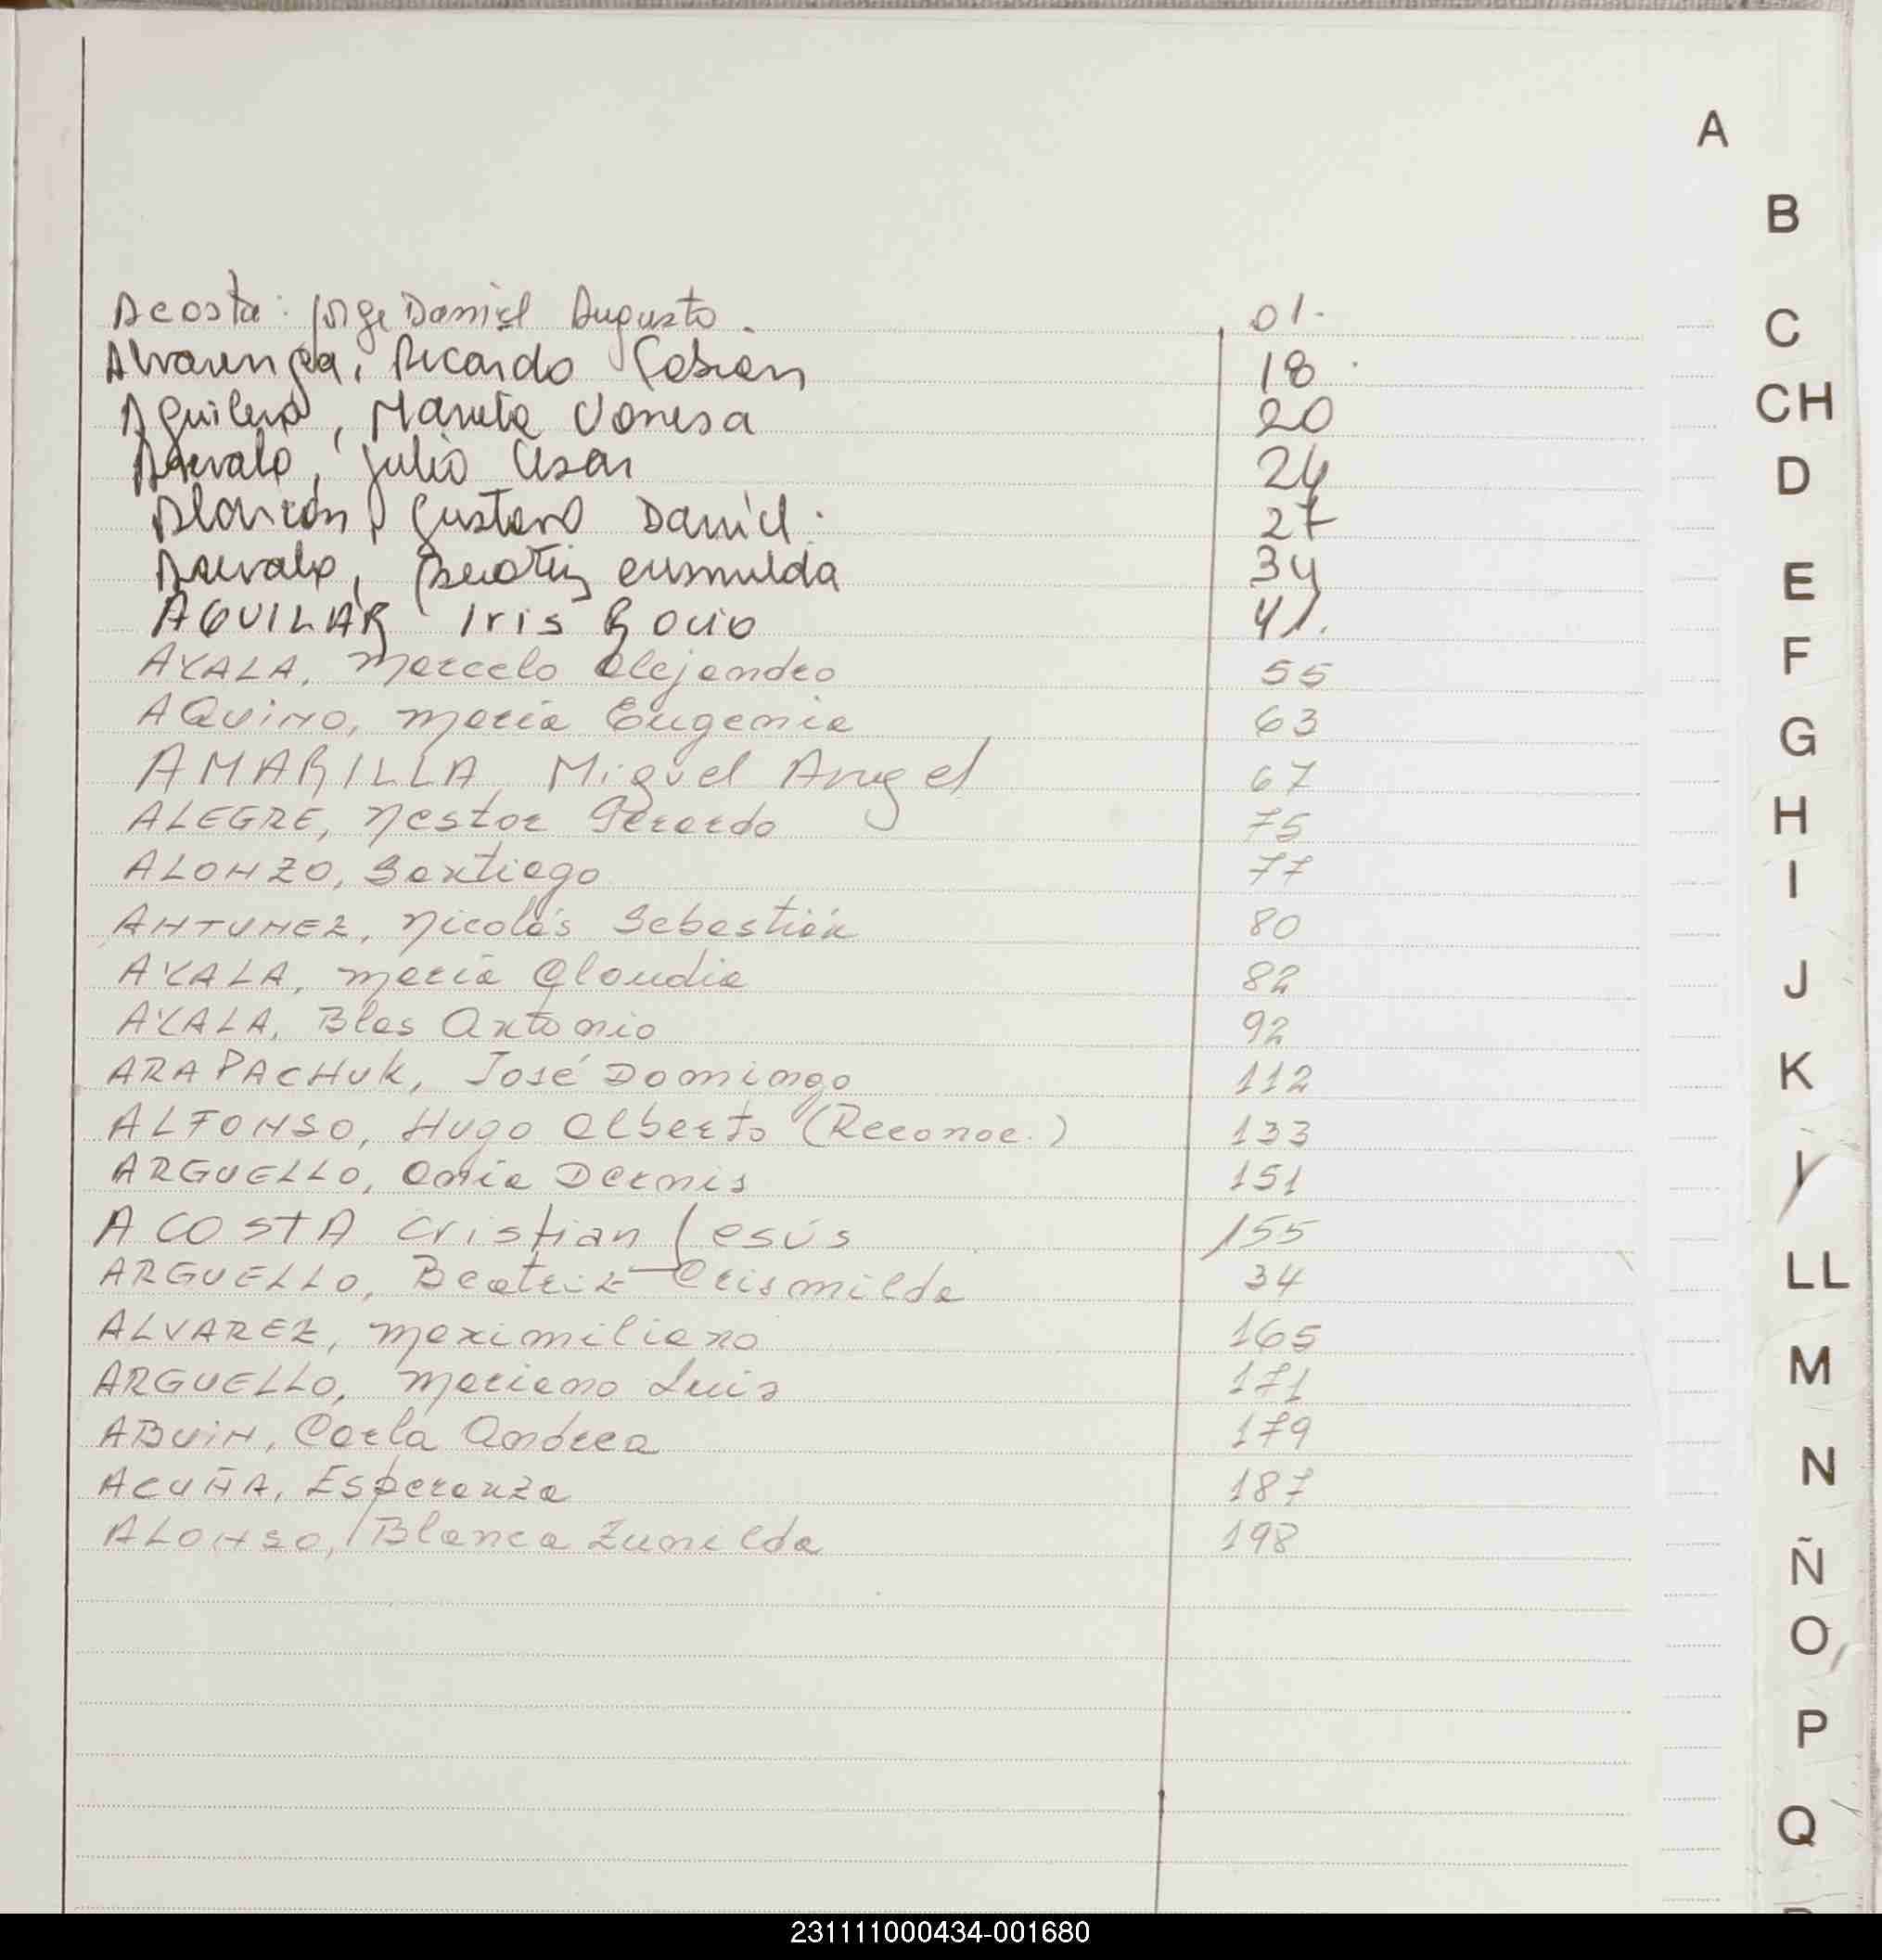 A
B
C
CH
D
E
F
G
H
I
J
K
LL
M
N
Ñ
O
P
Q
Acosta: Jorge Daniel Augusto. 01.
Alvarenga, Ricardo Fabian 18
Aguilera, Mariela Vanesa 20
Arevalo, Julio Cesar 24
Alarcón, Gustavo Daniel. 27
Arevalo, Beatriz crismilda 34
AGUILAR Iris Rocio 41.
AYALA, Marcelo Alejandro 55
AQUiNO, María Eugenia 63
AMARILLA Miguel Angel 67
ALEGRE, Nestor Gerardo 75
ALONZO, Santiago 77
ANTUNEZ, Nicolás Sebastián 80
AYALA, María Claudia 82
AYALA, Blas Antonio 92
ARAPACHUK, José Domingo 112
ALFONSO, Hugo Alberto (Reconoc.) 133
ARGUELLO, Dermis 151
ACOSTA Cristian Jesús 155
ARGUELLO, Beatriz Crismilda 34
ALVAREZ, Maximiliano 165
ARGUELLO, Mariano Luis 171
ABUiN, Carla Andrea 179
ACUÑA, Esperanza 187
ALONSO, Blanca Zunilda 198
231111000434-001680